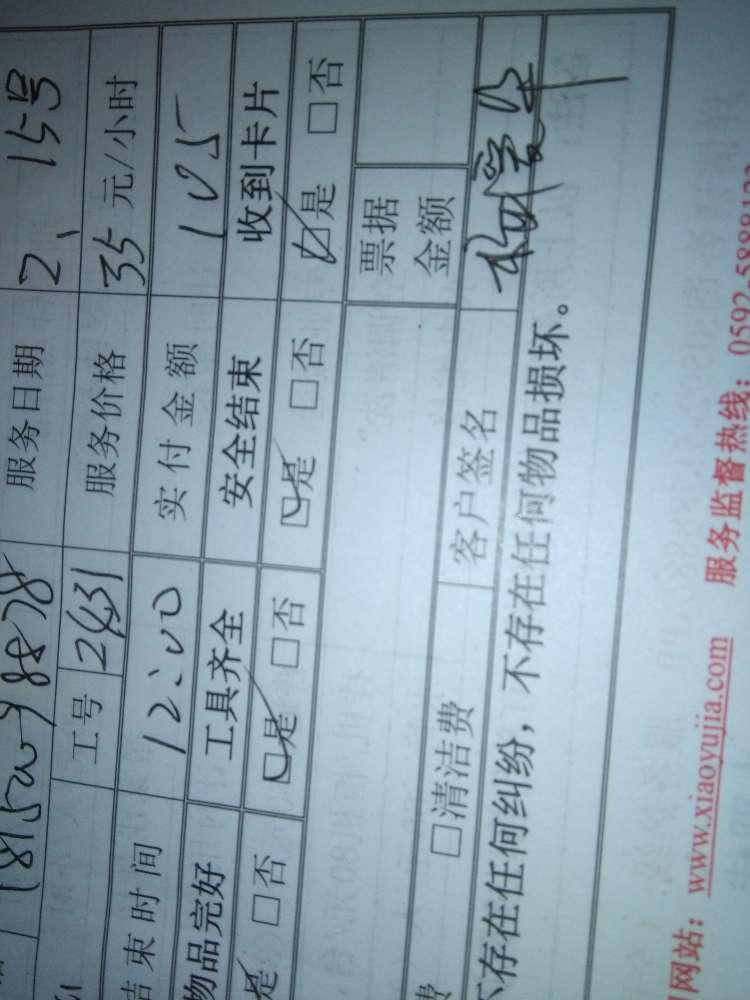 服务日期 2、15号
工号 2431 服务价格 35 元/小时
结束时间 12:00 实付金额 105
物品完好 工具齐全 安全结束 收到卡片
是 □否 □是 □否 □是 □否 □是 □否
票据金额
费 □清洁费 客户签名
不存在任何纠纷，不存在任何物品损坏。
网站：www.xiaoyujia.com 服务监督热线：0592-5888